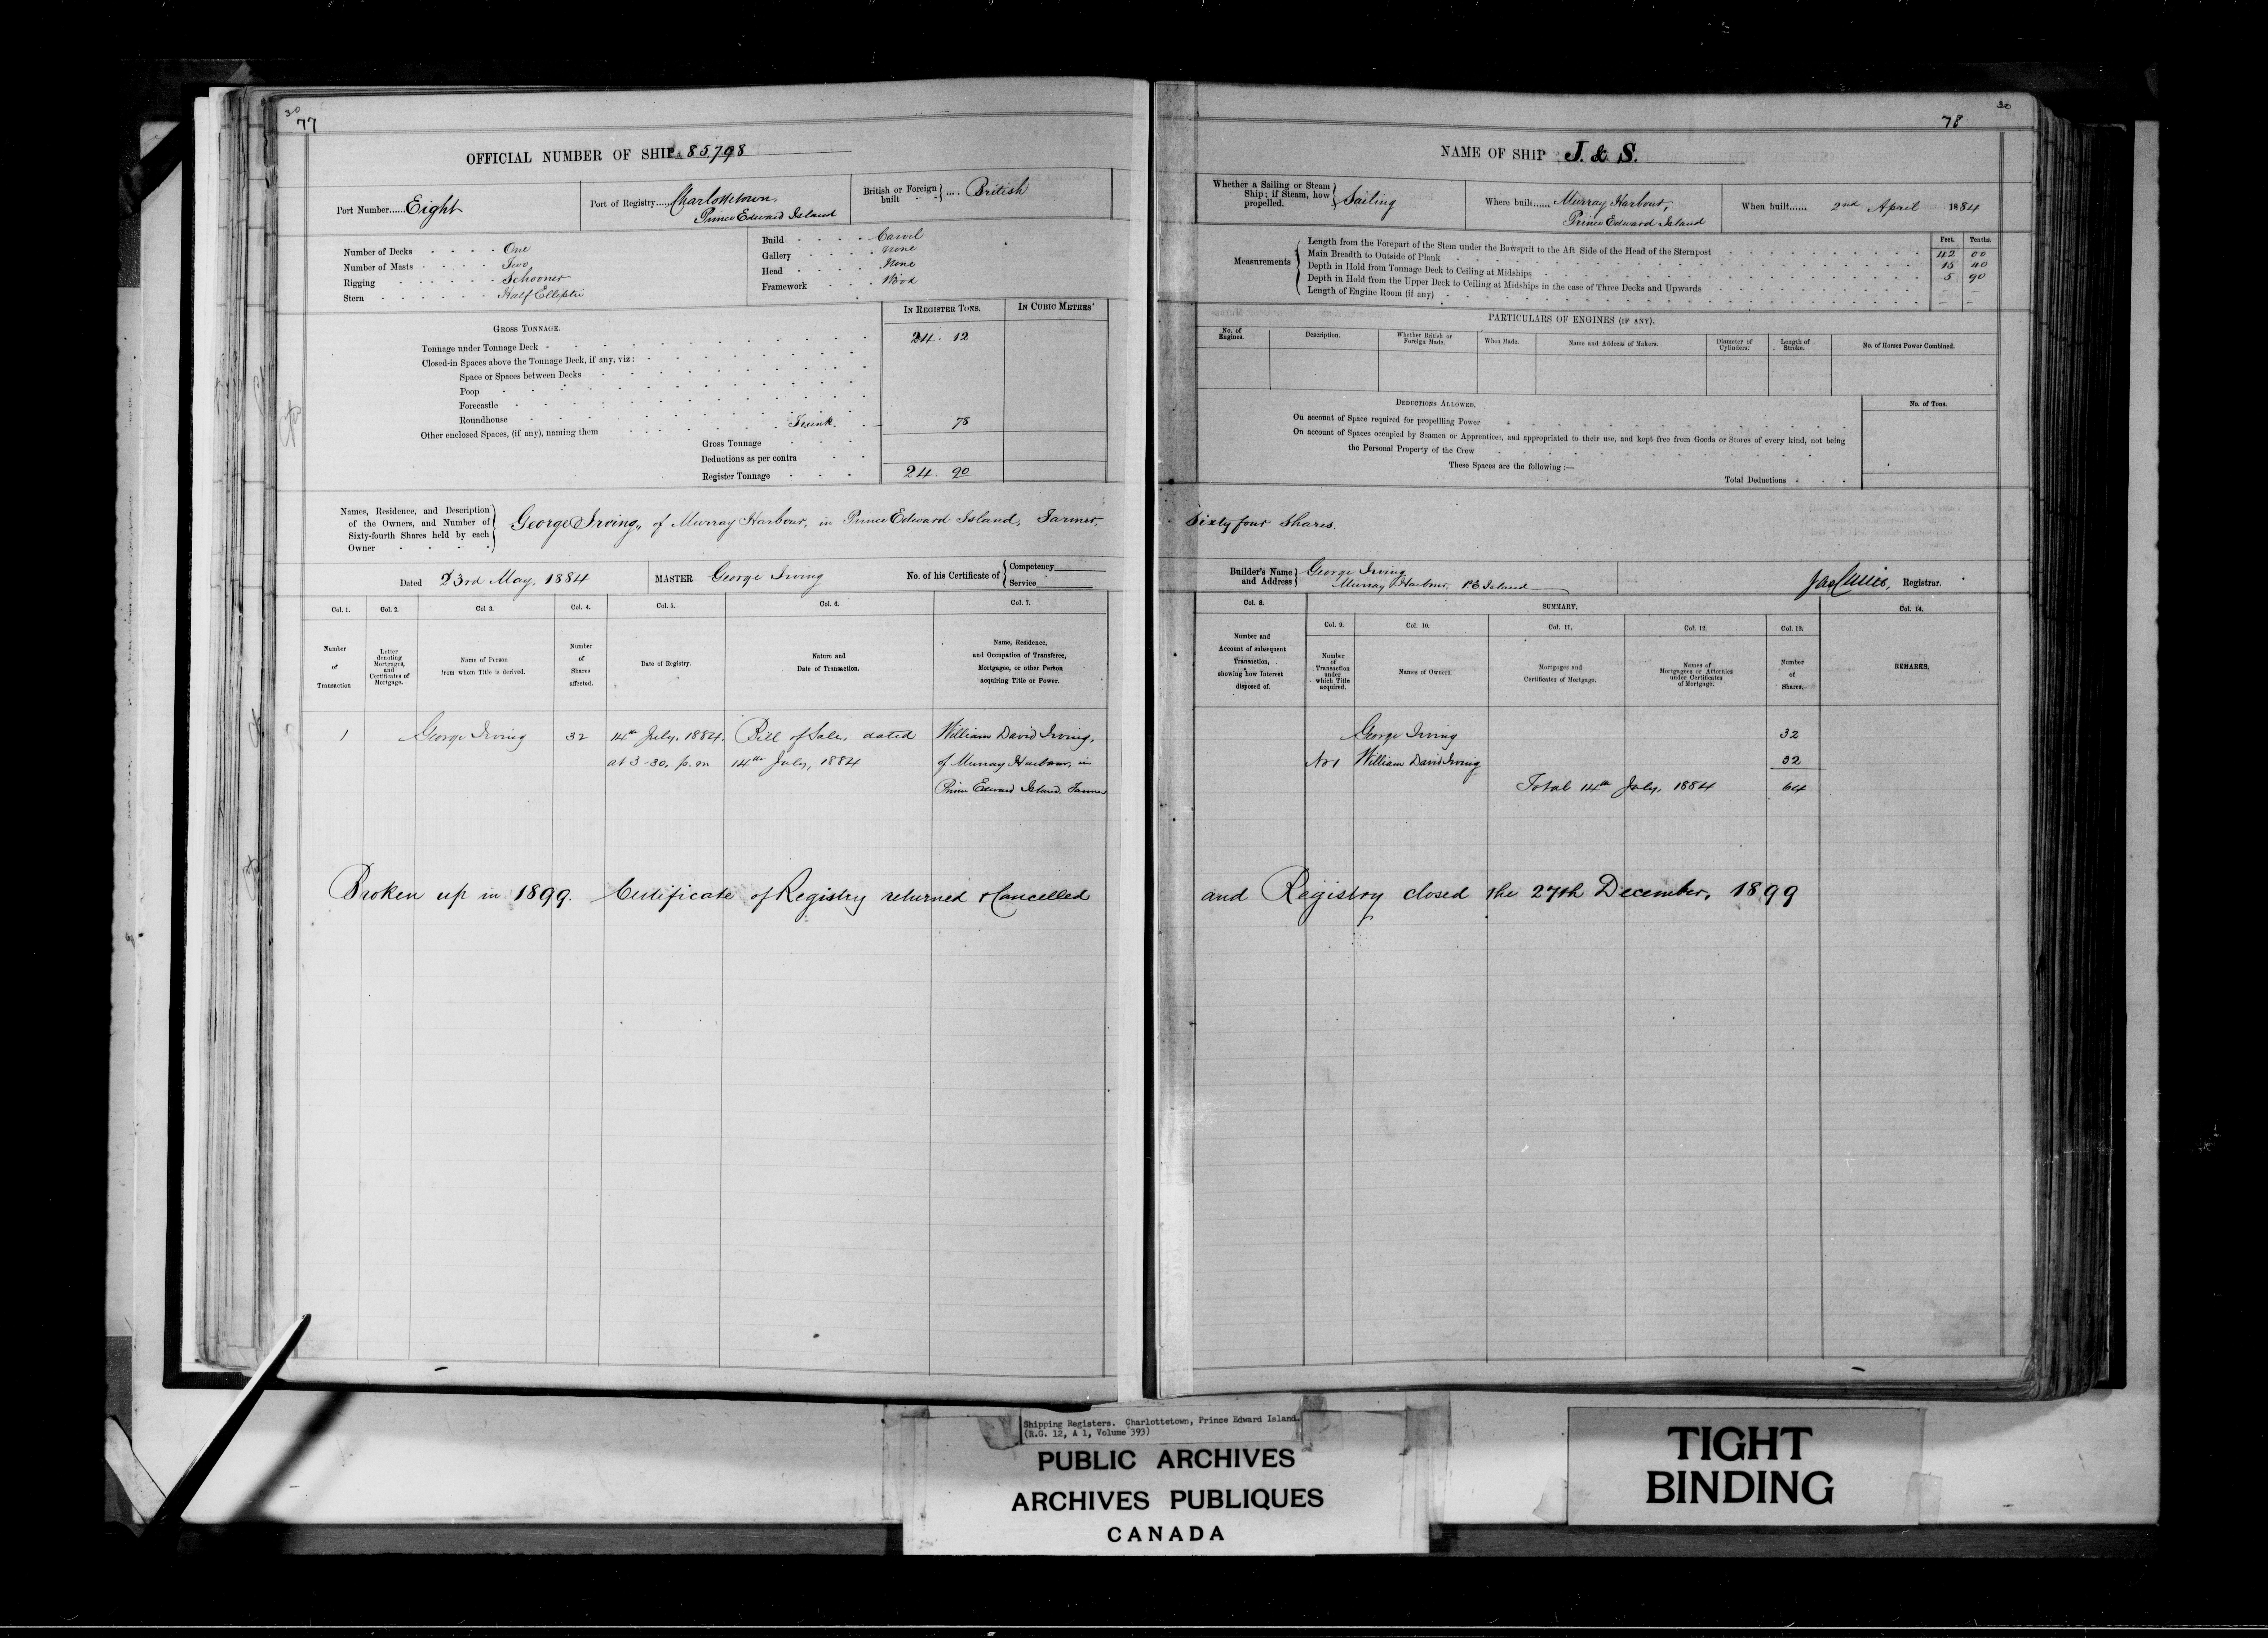 30
77
OFFICIAL NUMBER OF SHIP 85,798
Port Number......Eight
Port of Registry....Charlottetown, Prince Edward Island
British or Foreign built .... British
Number of Decks - - - - One
Number of Masts - - - - Two
Rigging - - - - Schooner
Stern - - - - Half Elliptic
Build - - - - Carvel
Gallery - - - - None
Head - - - - None
Framework - - - Wood
IN REGISTER TONS.
IN CUBIC METRES'
GROSS TONNAGE.
Tonnage under Tonnage Deck - 24. 12
Closed-in Spaces above the Tonnage Deck, if any, viz:
Space or Spaces between Decks
Poop
Forecastle
Roundhouse
Other enclosed Spaces, (if any), naming them Trunk. 78
Gross Tonnage
Deductions as per contra
Register Tonnage 24. 90
Names, Residence, and Description of the Owners, and Number of Sixty-fourth Shares held by each Owner
George Irving, of Murray Harbour, in Prince Edward Island, Farmer,
Dated 23rd May, 1884
MASTER George Irving
No. of his Certificate of Competency Service
Col. 1.
Col. 2.
Col 3.
Col. 4.
Col. 5.
Col. 6.
Col. 7.
Number of Transaction
Letter denoting Mortgages, and Certificates of Mortgage.
Name of Person from whom Title is derived.
Number of Shares affected.
Date of Registry.
Nature and Date of Transaction.
Name, Residence, and Occupation of Transferee, Mortgagee, or other Person acquiring Title or Power.
1 George Irving 32 14th July, 1884. Bill of Sale, dated William David Irving,
at 3-30, p.m 14th July, 1884 of Murray Harbour, in
Prince Edward Island. Farmer
Broken up in 1899. Certificate of Registry returned & Cancelled
30
78
NAME OF SHIP J. & S.
Whether a Sailing or Steam Ship; if Steam, how propelled. Sailing
Where built...... Murray Harbour, Prince Edward Island
When built...... 2nd April 1884
Feet. Tenths.
Measurements
Length from the Forepart of the Stem under the Bowsprit to the Aft Side of the Head of the Sternpost 42 00
Main Breadth to Outside of Plank 15 40
Depth in Hold from Tonnage Deck to Ceiling at Midships 5 90
Depth in Hold from the Upper Deck to Ceiling at Midships in the case of Three Decks and Upwards
Length of Engine Room (if any)
PARTICULARS OF ENGINES (IF ANY).
No. of Engines.
Description.
Whether British or Foreign Made.
When Made.
Name and Address of Makers.
Diameter of Cylinders.
Length of Stroke.
No. of Horses Power Combined.
DEDUCTIONS ALLOWED.
No. of Tons.
On account of Space required for propellling Power
On account of Spaces occupied by Seamen or Apprentices, and appropriated to their use, and kept free from Goods or Stores of every kind, not being
the Personal Property of the Crew
These Spaces are the following :—
Total Deductions
Sixty four Shares.
Builder's Name and Address George Irving Murray Harbour, P.E Island
Registrar.
Col. 8.
SUMMARY.
Col. 14.
Col. 9.
Col. 10.
Col. 11.
Col. 12.
Col. 13.
Number and Account of subsequent Transaction, showing how Interest disposed of.
Number of Transaction under which Title acquired.
Names of Owners.
Mortgages and Certificates of Mortgage.
Names of Mortgagees or Attornies under Certificates of Mortgage.
Number of Shares.
REMARKS.
George Irving 32
No 1 William David Irving 32
Total 14th July, 1884 64
and Registry closed the 27th December, 1899
Shipping Registers. Charlottetown, Prince Edward Island.
(R.G. 12, A 1, Volume 393)
PUBLIC ARCHIVES
ARCHIVES PUBLIQUES
CANADA
TIGHT
BINDING